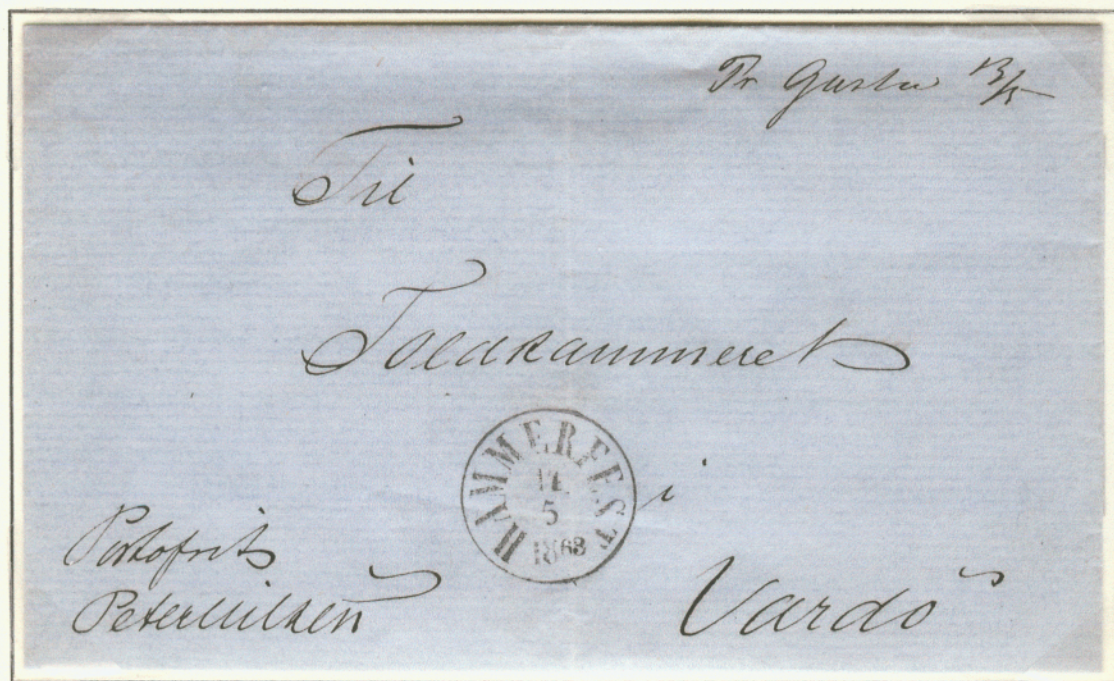 Pr Gustav 13/5
Til
Toldkammeret
HAMMERFEST
14
5
1868
i
Portofrit
Vardö